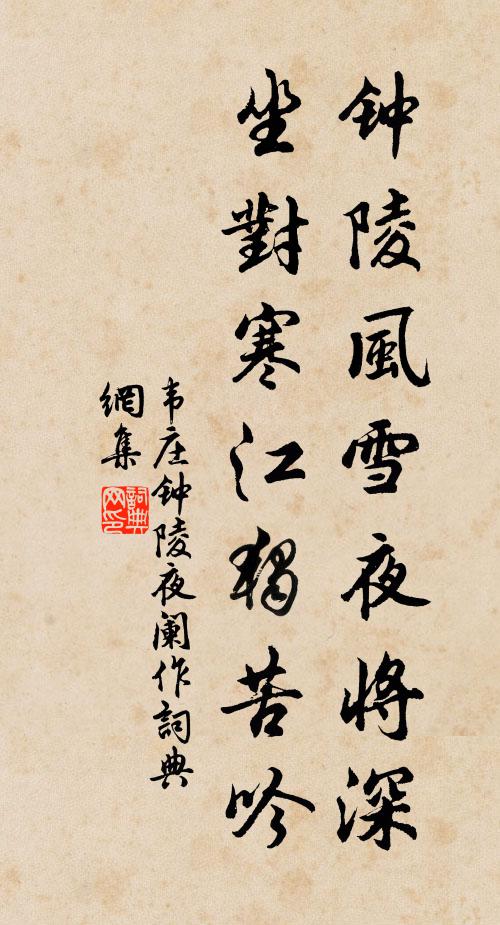 钟陵風雪夜将深
坐對寒江獨苦吟
韦庄钟陵夜阑作詞典
網集
詞典
网印